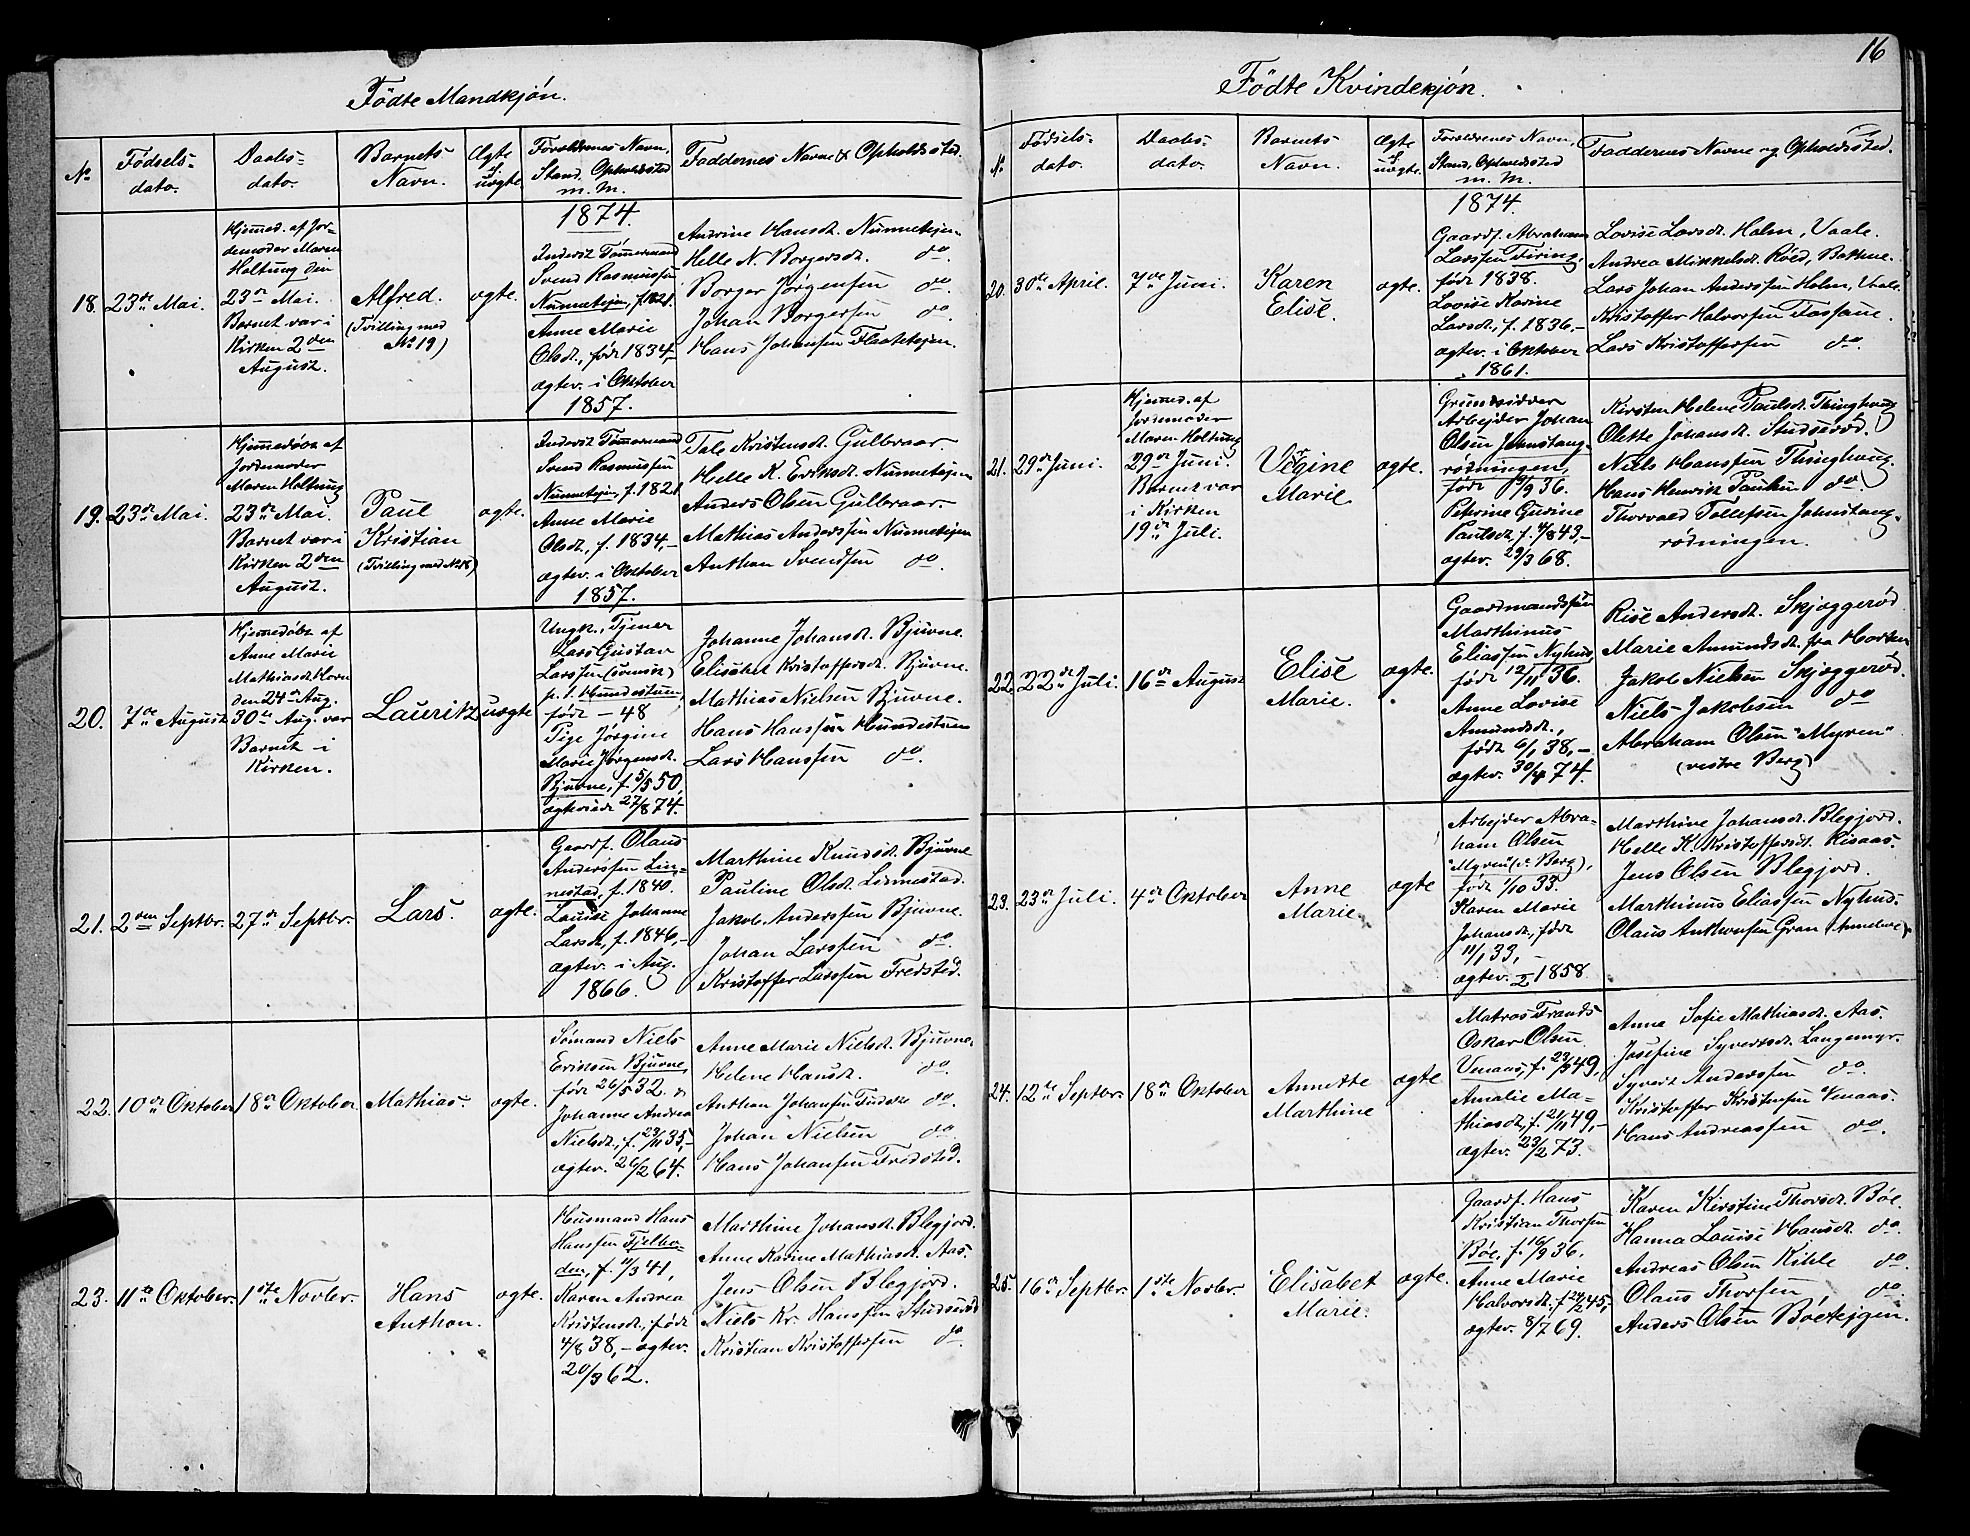 Födte Mandkjön.
No
Födsels-
dato.
Daabs-
dato.
Barnets
Navn.
Ægte
l.
uægte.
Forældrenes Navn,
Stand, Opholdsted
m. M.
Faddernes Navne & Opholdssted.
1874.
18.
23de Mai.
Hjemmed. af Jor-
demoder Maren
Holtung den
23de Mai.
Barnet var i
Kirken 2den
August.
Alfred.
(Tvilling med
No 19)
ægte.
Inderst Tømmermand
Svend Rasmussen
Nunnetejen, f. 1821.
Anne Marie
Olsdt., født 1834,-
ægtev. i Oktober
1857.
Andrine Hansdt. Nunnetejen
Helle N. Borgersdt. do.
Borger Jörgensen do
Johan Borgersen do.
Hans Johansen Flaatetejen.
19.
23de Mai.
Hjemmedöbt af
Jordemoder
Maren Holtung
23de Mai.
Barnet var i
Kirken 2den
August.
Paul
Kristian
(Tvilling med No 18)
ægte.
Inderst Tömmermand
Svend Rasmussen
Nunnetejen, f. 1821
Anne Marie
Olsdt., f. 1834,-
ægtev. i Oktober
1857.
Tale Kristensdt. Gulbraar.
Helle K. Eriksdt. Nunnetejen
Anders Olsen Gulbraar.
Mathias Anderssen Nunnetejen
Anthon Svendsen do.
20.
7de August
Hjemmedöbt af
Anne Marie
Mathiasdt. Horn
den 24de Aug.
30te Aug. var
Barnet i
Kirken.
Lauritz
uægte
Ungk., Tjener
Lars Gustav
Larssen (svensk)
p. t. Hundestuen,
født - 48
Pige Jörgine
Marie Jörgensdt.
Bjuvne, f. 5/5 50,
ægteviede 27/8 74.
Johanne Johansdt. Bjuvne.
Elisabet Kristoffersdt. Bjuvne.
Mathias Nielsen Bjuvne.
Hans Hanssen Hundestuen
Lars Hanssen do.
21.
2den Septbr.
27de Septbr.
Lars.
ægte.
Gaardf. Olaus
Anderssen Lin-
nestad, f. 1840.
Lauise Johanne
Larsdt., f. 1846,-
ægtev. i Aug.
1866.
Marthine Knudsdt. Bjuvne
Pauline Olsdt. Linnestad.
Jakob Anderssen Bjuvne.
Johan Larssen do.
Kristoffer Larssen Fredsted.
22.
10de Oktober
18de Oktober
Mathias.
ægte.
Sömand Niels
Eriksen Bjuvne,
født 26/5 32. &
Johanne Andrea
Nielsdt., f. 23/11 35,-
ægtev. 26/2 64.
Anne Marie Nielsdt. Bjuvne.
Helene Hansdt. do.
Anthon Johansen do.
Johan Nielsen do.
Hans Johansen Fredsted.
23.
11te Oktober.
1ste Novbr.
Hans
Anthon.
ægte.
Husmand Hans
Hanssen Fjelbo-
den, f. 11/3 41,
Karen Andrea
Kristensdt., født
4/8 38,- ægtev.
20/3 62.
Marthine Johansdt. Blegjord.
Anne Karine Mathiasdt. Aas.
Jens Olsen Blegjord.
Niels Kr. Hanssen Studseröd
Kristian Kristoffersen do.
16
Födte Kvindekjön.
No
Födsels-
dato.
Daabs-
dato.
Barnets
Navn.
Ægte
l.
uægte.
Forældrenes Navn,
Stand, Opholdssted
m. M.
Faddernes Navne og Opholdssted.
1874.
20.
30te April.
7de Juni.
Karen
Elise.
ægte.
Gaardf. Abraham
Larssen Firing,
født 1838.
Lovise Karine
Larsdt., f. 1836,-
ægtev. i Oktober
1861.
Lovise Larsdt. Holm, Vaale.
Andrea Mikkelsdt. Röed, Bakkene.
Lars Johan Anderssen Holm, Vaale.
Kristoffer Halvorsen Fossane.
Lars Kristoffersen do.
21.
29de Juni.
Hjemmed. af
Jordemoder
Maren Holtung
29de Juni.
Barnet var
i Kirken
19de Juli.
Vegine
Marie
ægte.
Grundsidder
Arbejder Johan
Olsen Jonnstang-
rödningen,
født 9/9 36.
Petrine Gurine
Paulsdt., f. 4/8 43,-
ægtev. 29/3 68.
Kirsten Helene Paulsdt. Thinghaug
Olette Johansdt. Studseröd.
Niels Hanssen Thinghaug.
Hans Henrik Paulsen do.
Thorvald Tollefsen Johnstang-
rödningen.
22.
22de Juli.
16de August
Elise
Marie.
ægte.
Gaardmandssøn
Marthinus
Eliassen Nyhus,
født 12/11 36.
Anne Lovise
Amundsdt.,
født 6/1 38,-
ægtev. 30/4 74.
Rise Andersdt. Skjæggeröd
Marie Amundsdt. fra Horten
Jakob Nielsen Skjæggeröd.
Niels Jakobsen do
Abraham Olsen "Myren"
(vestre Berg)
23.
23de Juli.
4de Oktober
Anne
Marie.
ægte
Arbejder Abra-
ham Olsen
"Myren" (v. Berg),
født 1/10 33.
Karen Marie
Johansdt., født
11/1 33,-
ægtev. 1858
Marthine Johansdt. Blegjord.
Helle K. Kristoffersdt. Risaas.
Jens Olsen Blegjord.
Marthinus Eliassen Nyhus.
Olaus Anthonsen Gran (Annebue).
24.
12te Septbr.
18de Oktober
Annette
Marthine
ægte
Matros Frands
Oskar Olsen
Venaas, f. 23/3 49,
Amalie Ma-
thiasdt., f. 21/11 49,-
ægtev. 23/2 73.
Anne Sofie Mathiasdt. Aas.
Josefine Syversdt. Langemyr.
Syvert Anderssen do.
Kristoffer Kristensen Venaas.
Hans Andreassen do.
25.
16de Septbr.
1ste Novbr.
Elisabet
Marie.
ægte.
Gaardf. Hans
Kristian Thorsen
Böe, f. 16/9 36.
Anne Marie
Halvorsdt., f. 24/2 45,-
ægtev. 8/7 69.
Karen Kirstine Thorsdt. Böe.
Hanna Louise Hansdt. do.
Andreas Olsen Kihle do.
Olaus Thorsen do.
Anders Olsen Böetejgen.